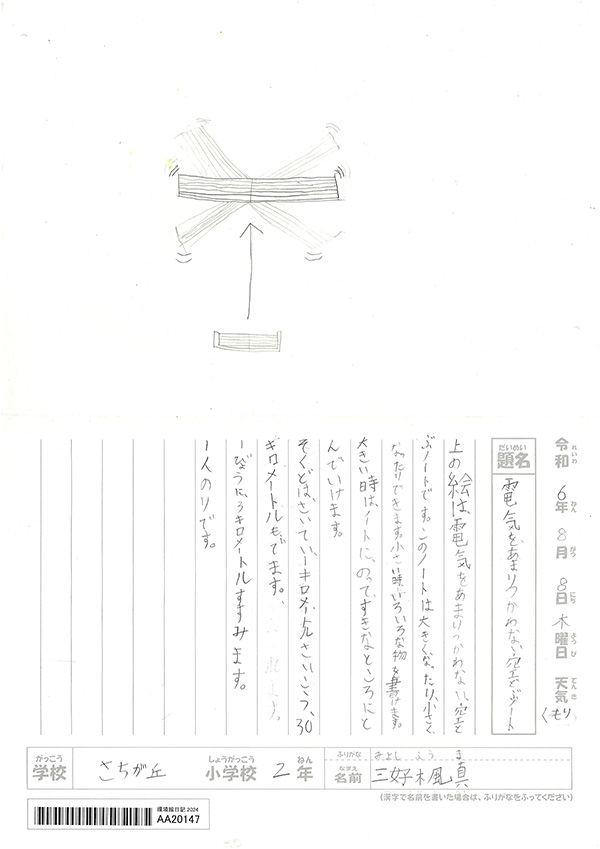 令和 6年 8月 8日 木曜日 天気 くもり
れいわ ねん がつ にち ようび てんき
だいめい
題名
電気をあまりつかわない空とぶノート
上の絵は、電気をあまりつかわない、空と
ぶノートです。このノートは大きくなったり、小さく
なったりできます。小さい時、いろいろな物を書けます。
大きい時は、ノートに、のって、すきなところにと
んでいけます。
そくどは、さいてい一キロメートルさいこう、30
キロメートルもでます。
一びょうに、3キロメートルすすみます。
1人のりです。
がっこう
学校
さちが丘
しょうがっこう
小学校
2
ねん
年
ふりがな
みよし ふうま
なまえ
名前
三好 楓真
(漢字で名前を書いた場合は、ふりがなをふってください)
環境絵日記 2024
AA20147